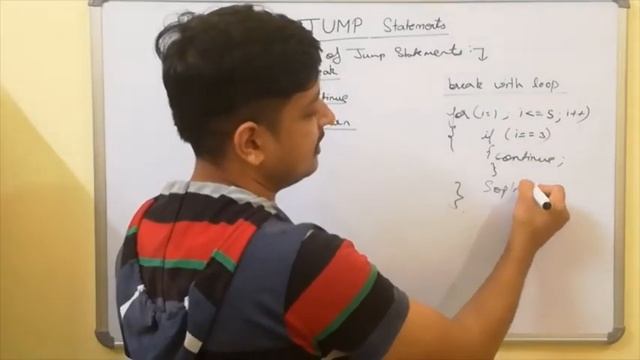 JUMP Statements
of Jump Statements:-
break with loop
for (i=1, i<=5, i++)
{ if (i==3)
{ continue;
}
} Sopln